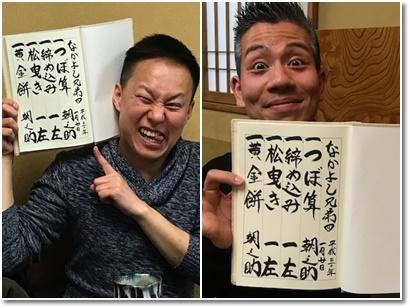 なかよし兄弟四
一月廿日
一つぼ算 朝之助
一締め込み 一左
一松曳き 一左
一黄金餅 朝之助
なかよし兄弟四
一月廿日
一つぼ算 朝之助
一締め込み 一左
一松曳き 一左
一黄金餅 朝之助